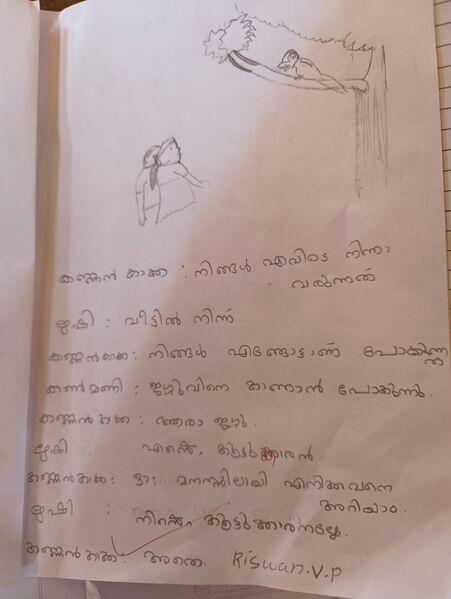 കണ്ണൻ കാക്ക : നിങ്ങൾ എവിടെ നിന്നാ
വരുന്നത്
മഷി : വീട്ടിൽ നിന്ന്
കണ്ണൻകാക്ക : നിങ്ങൾ എങ്ങോട്ടാണ് പോകുന്ന
കൺമണി : ജഗ്ഗുവിനെ കാണാൻ പോകുന്നു.
കണ്ണൻകാക്ക : ആരാ ജഗ്ഗു.
മഷി : എന്റെ കൂട്ടുകാരൻ
കണ്ണൻകാക്ക : ആ മനസ്സിലായി എനിക്കവനെ
അറിയാം.
മഷി : നിന്റെ കൂട്ടുകാരനല്ലേ.
കണ്ണൻകാക്ക : അതെ Riswan.v.p